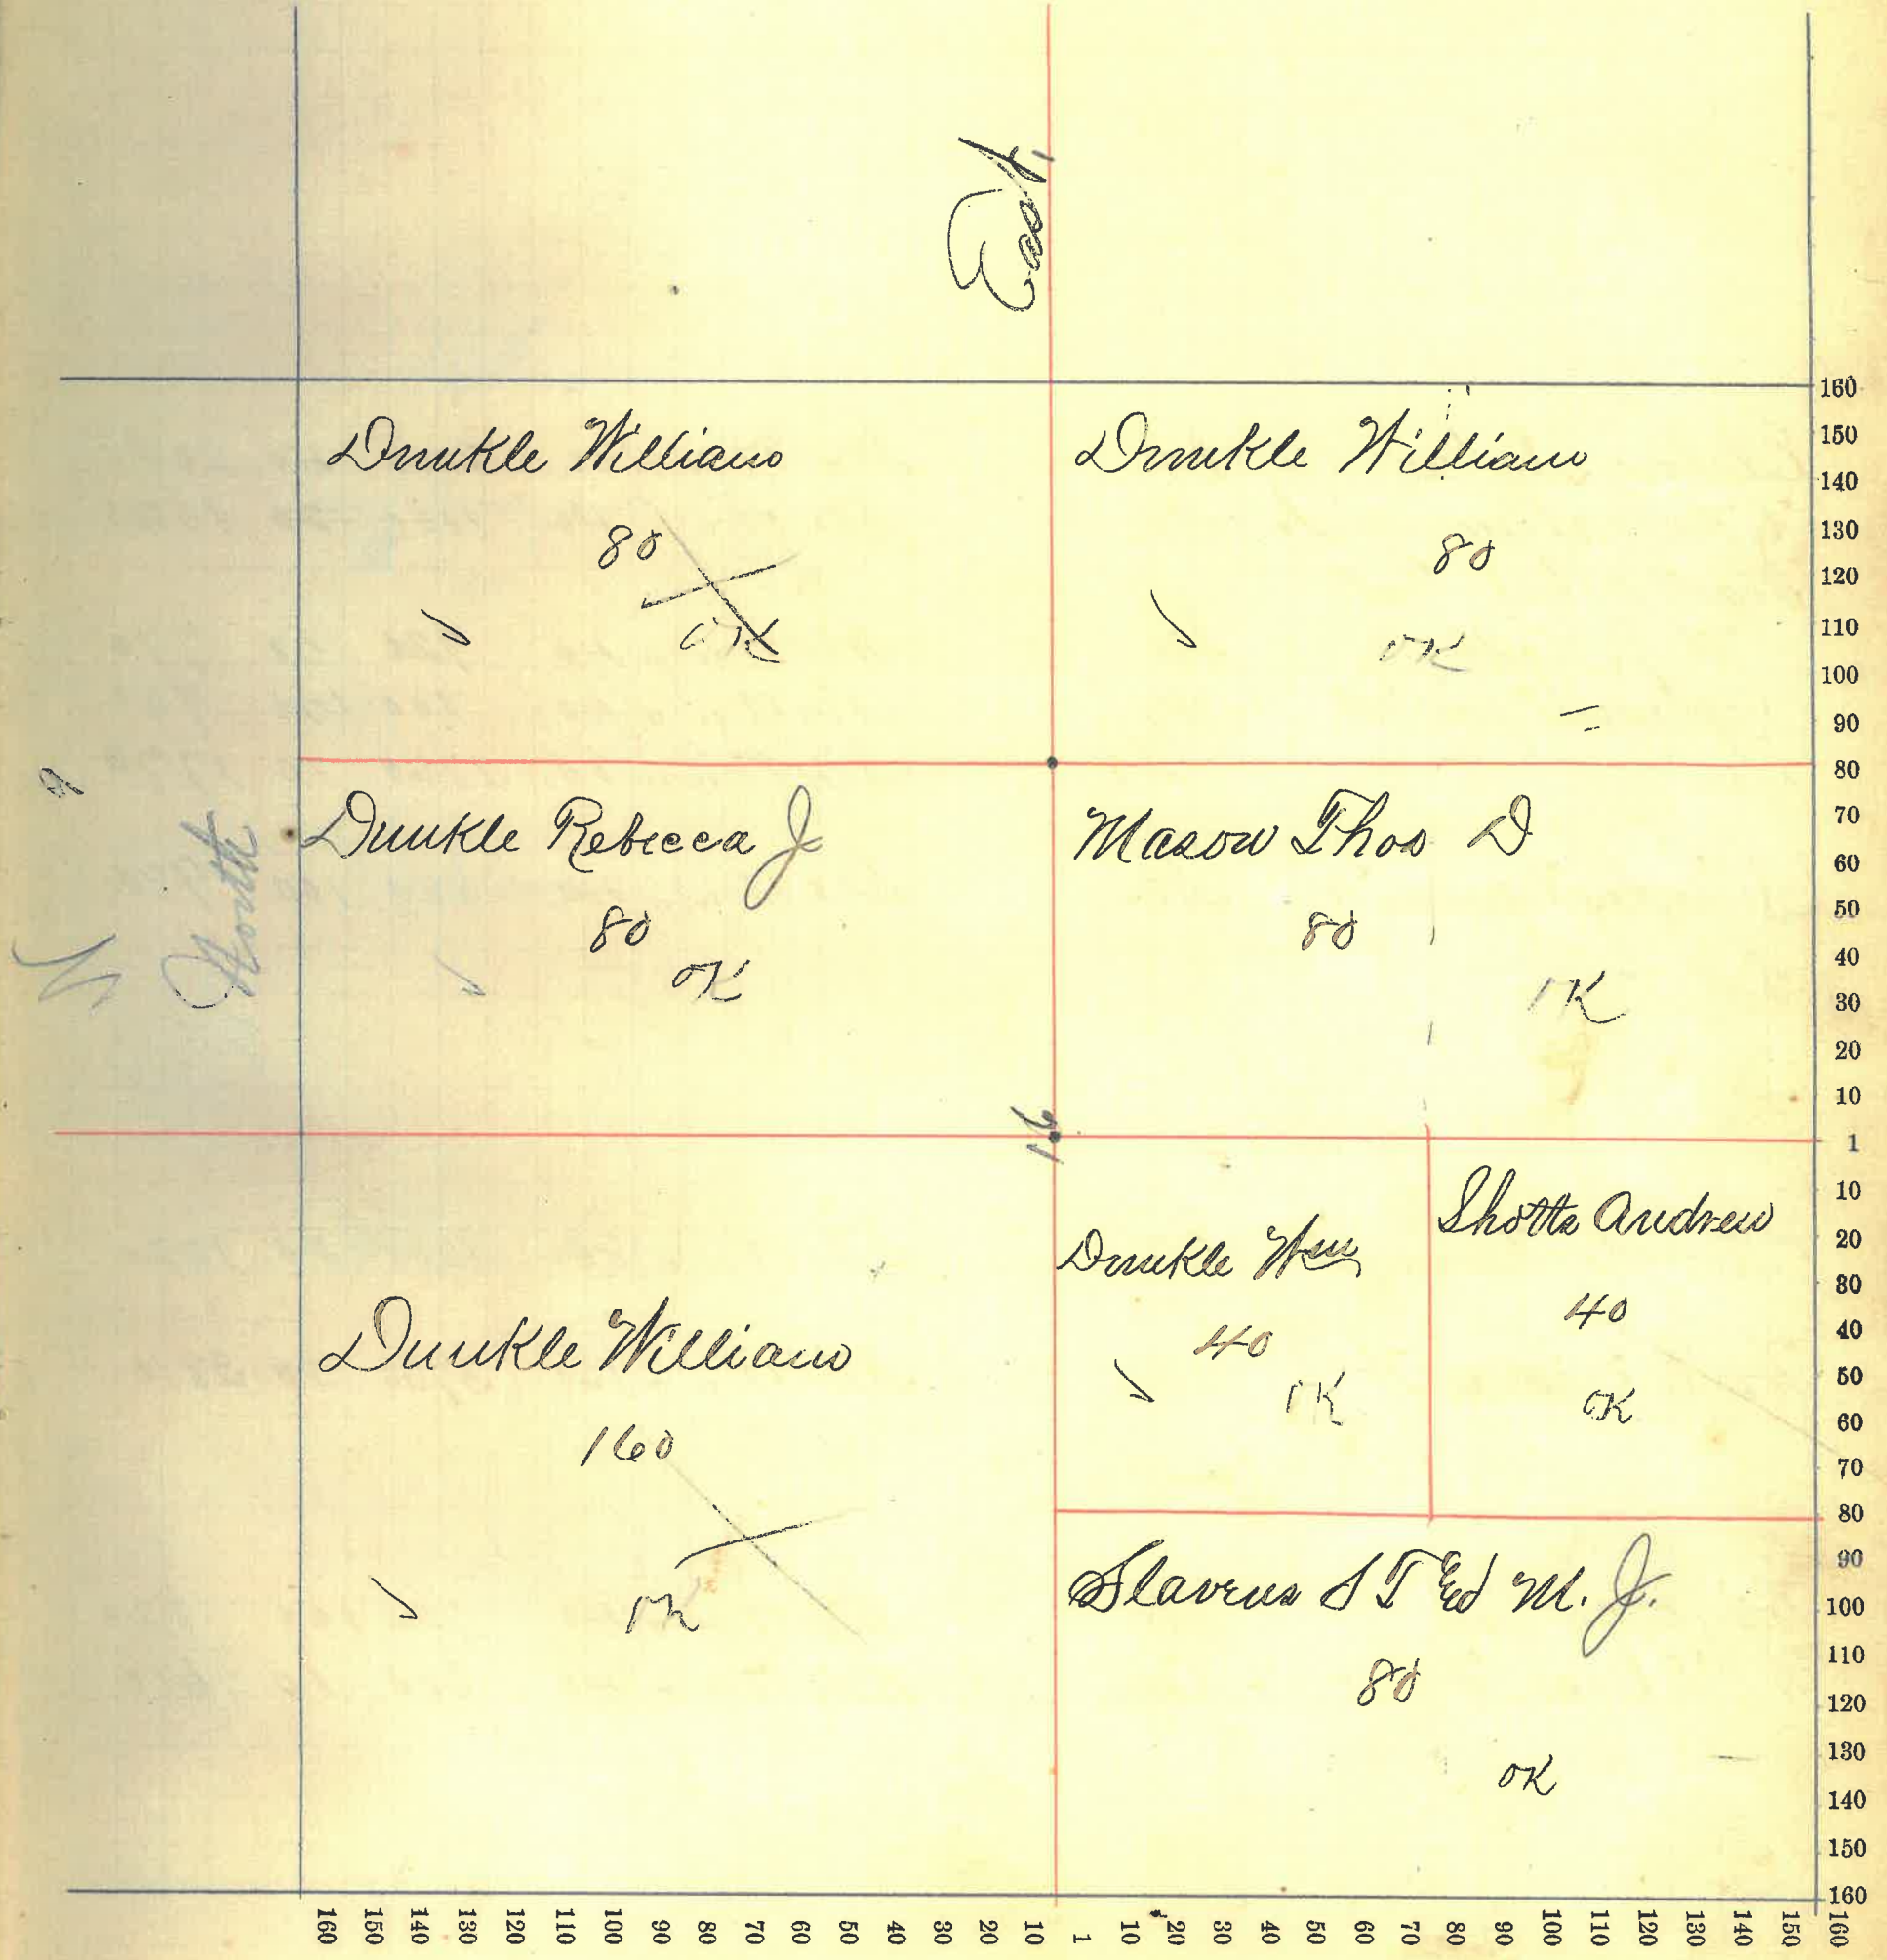 East
Dunkle William
80
OK
Dunkle William
80
OK
North
Dunkle Rebecca J
80
OK
Mason Thos D
80
OK
16
Dunkle William
160
OK
Dunkle Wm
40
OK
Shotts Andrew
40
OK
Slavens S T Ed M. J.
80
OK
160
150
140
130
120
110
100
90
80
70
60
50
40
30
20
10
1
10
20
30
40
50
60
70
80
90
100
110
120
130
140
150
160
160 150 140 130 120 110 100 90 80 70 60 50 40 30 20 10 1 10 20 30 40 50 60 70 80 90 100 110 120 130 140 150 160